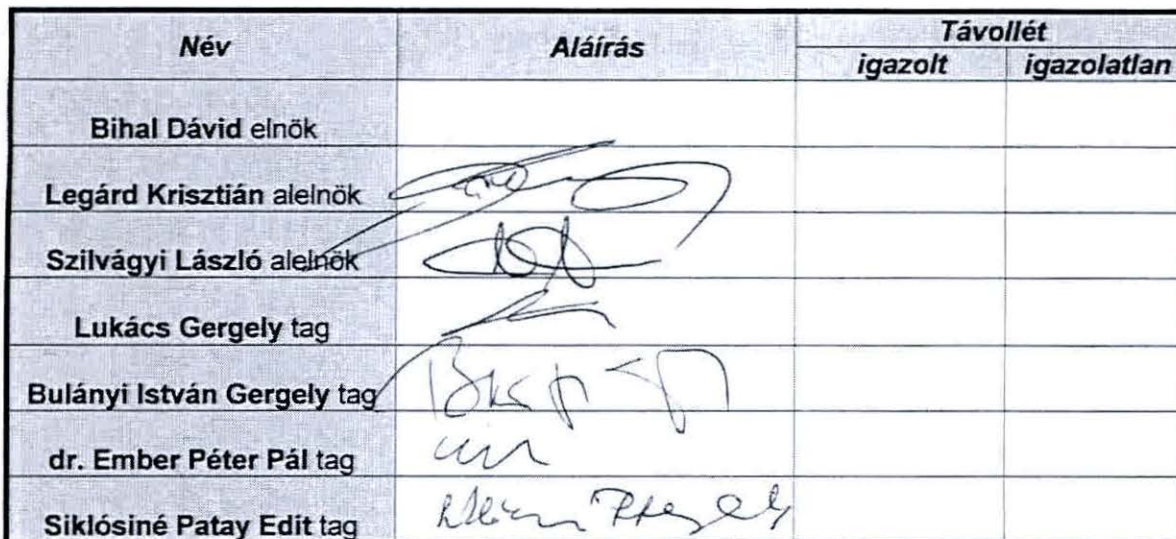 Név Aláírás Távollét
igazolt igazolatlan
Bihal Dávid elnök
Legárd Krisztián alelnök
Szilvágyi László alelnök
Lukács Gergely tag
Bulányi István Gergely tag
dr. Ember Péter Pál tag
Siklósiné Patay Edit tag